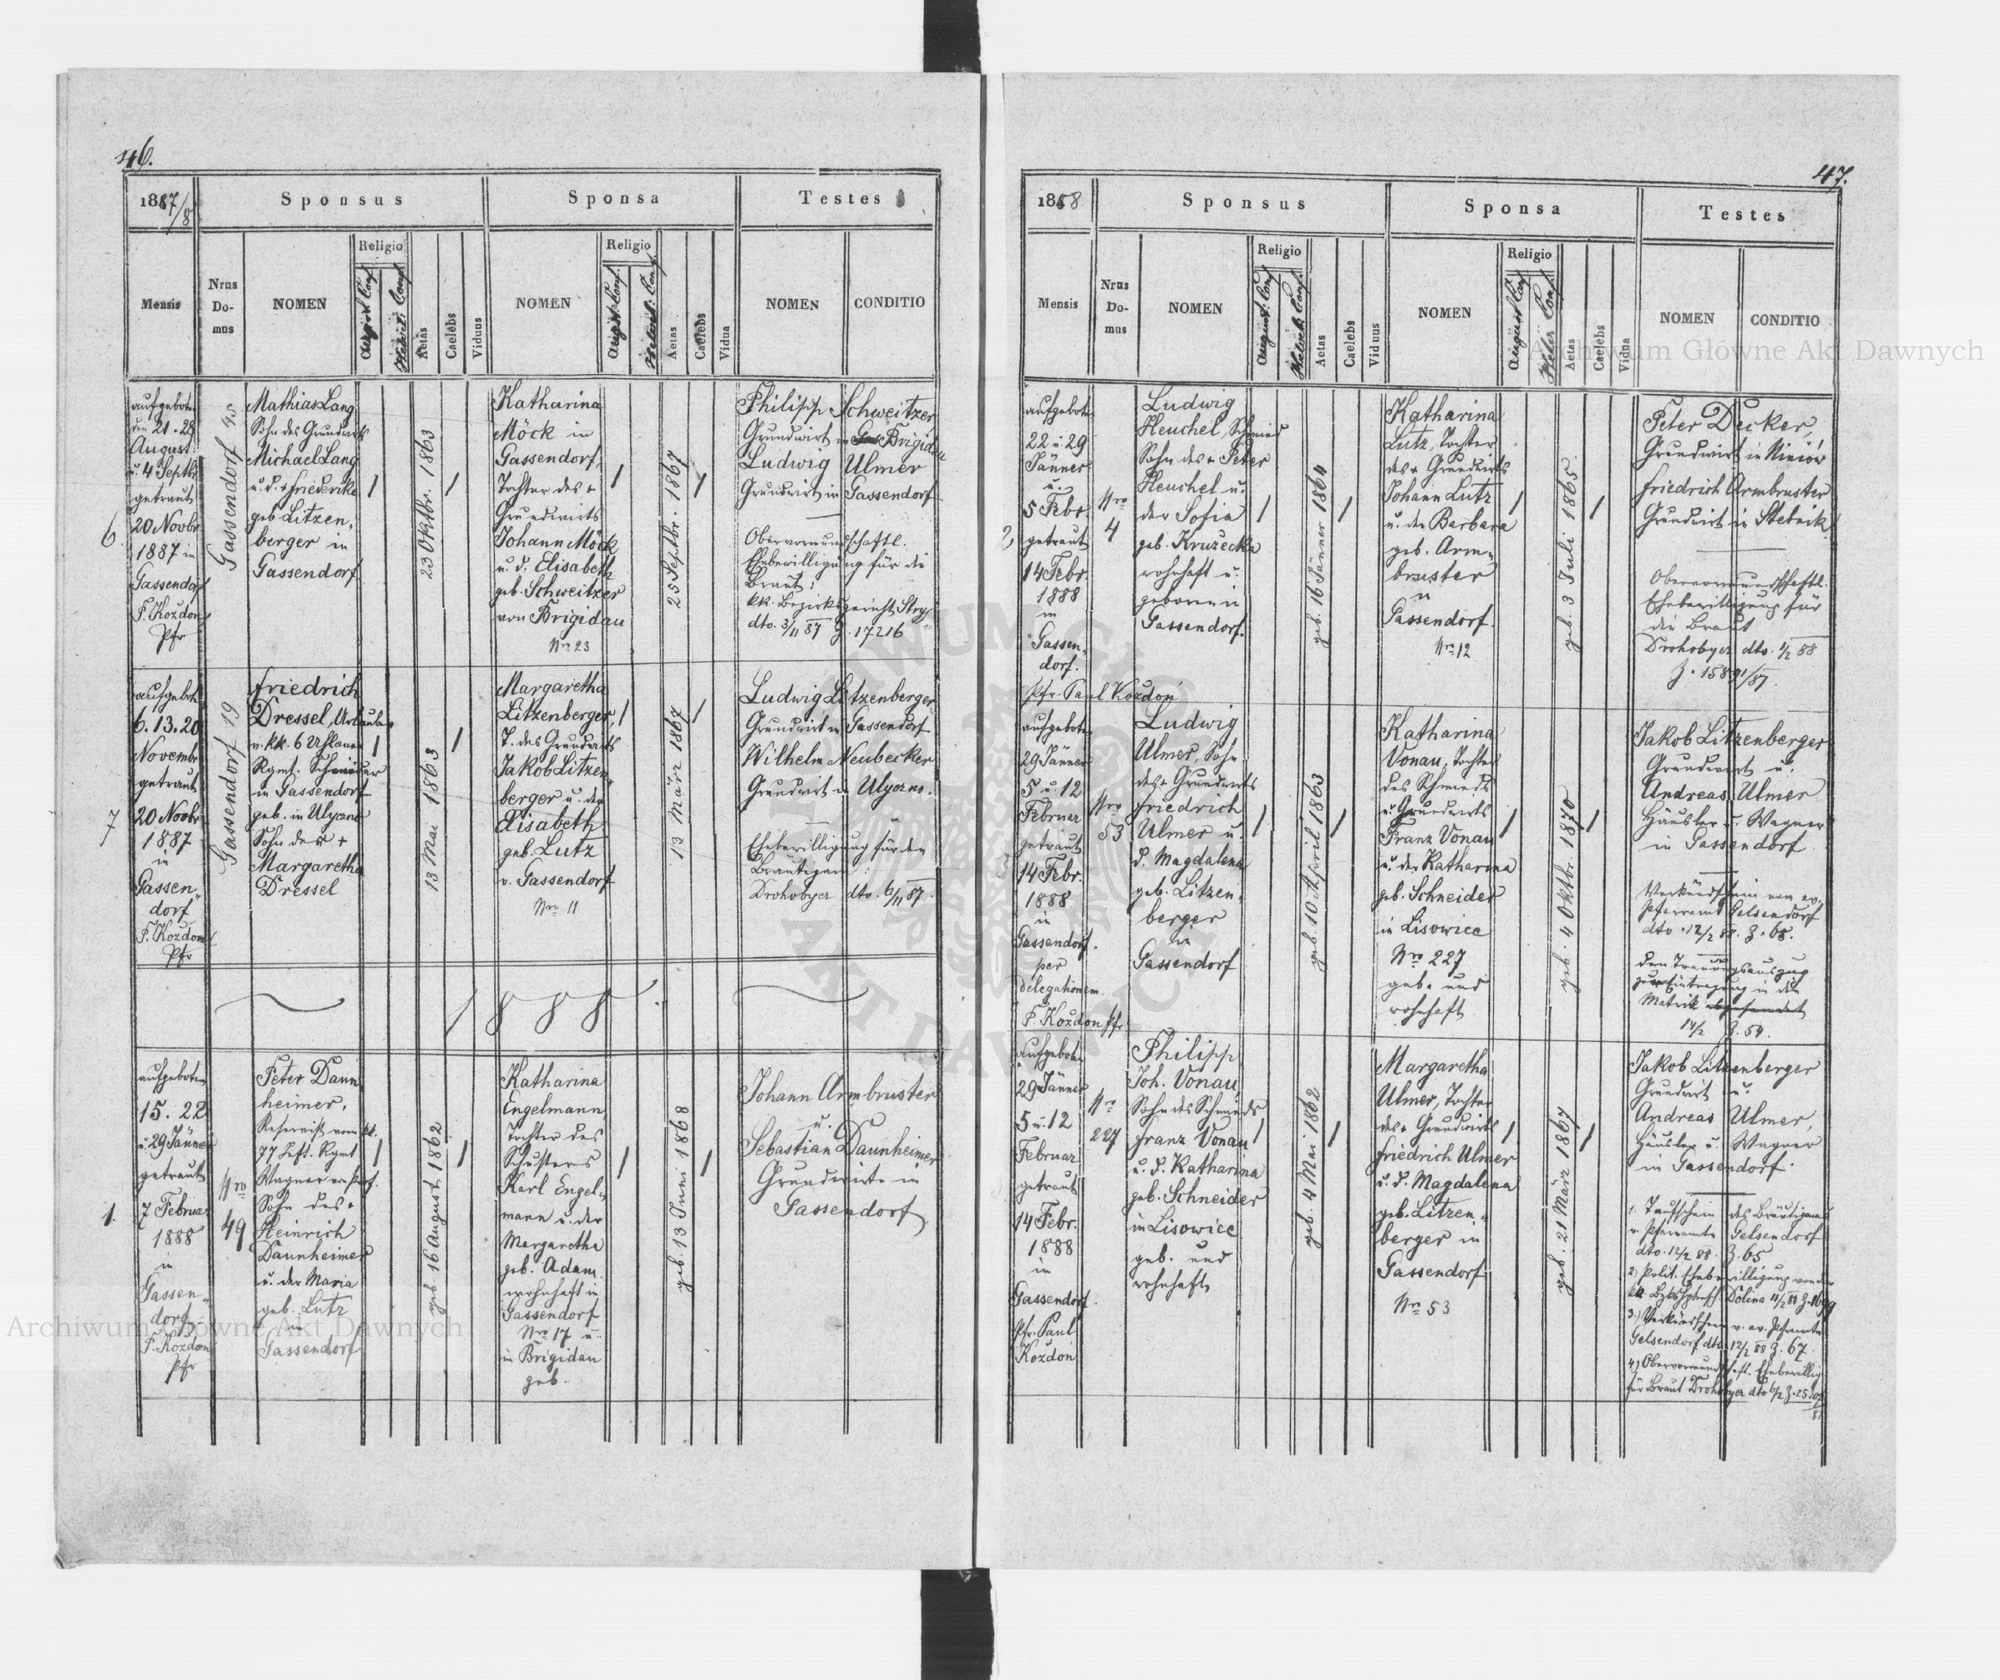 46.
1887/8
Sponsus
Sponsa
Testes
Mensis
Nrus Do-mus
NOMEN
Religio
August. Conf.
Helvet. Conf.
Aetas
Caelebs
Viduus
NOMEN
Religio
August. Conf.
Helvet. Conf.
Aetas
Caelebs
Vidua
NOMEN
CONDITIO
6
aufgeboten
den 21. 28
August
u. 4 Septbr
getraut
20 Novbr
1887 in
Gassendorf
P. Kozdon
Pfr
Gassendorf
Mathias Lang
Sohn des Grundwirts
Michael Lang
u. d. + Friederike
geb Litzen-
berger in
Gassendorf
23 Oktbr. 1863
Katharina
Möck in
Gassendorf,
Tochter des +
Grundwirts
Johann Möck
u. d. Elisabeth
geb. Schweitzer
von Brigidau
Nro 23
25 Septbr. 1867
Philipp Schweitzer
Grundwirt in Brigidau
Ludwig Ulmer
Grundwirt in Gassendorf
Obervormundschaftl.
Ehebewilligung für die
Braut:
kk. Bezirksgericht Stryj
dto. 3/11 87 Z. 17216
7
aufgeboten
6. 13. 20
Novembr
getraut
20 Novbr
1887
in
Gassen-
dorf
P. Kozdon
Pfr
Gassendorf 19
Friedrich
Dressel, Urlauber
v. kk. 6 Uhlanen
Rgmt. Schneider
in Gassendorf
geb. in Ulyczno
Sohn der +
Margaretha
Dressel
13 Mai 1863
Margaretha
Litzenberger,
T. des Grundwirts
Jakob Litzen-
berger u. der
Elisabeth
geb. Lutz
v. Gassendorf
Nro 11
13 März 1867
Ludwig Litzenberger
Grundwirt in Gassendorf
Wilhelm Neubecker
Grundwirt in Ulyczno.
Ehebewilligung für den
Bräutigam:
Drohobycz dto. 6/11 87.
1888.
1.
aufgeboten
15. 22
u. 29 Jänner
getraut
7 Februar
1888
in
Gassen-
dorf
P. Kozdon
Pfr
Nro
49
Peter Daun
heimer,
Reservist vom kk.
77 Inft. Rgmt
Wagner von Prof.
Sohn des +
Heinrich
Daunheimer
u. der Maria
geb. Lutz
in
Gassendorf
geb. 16 August 1862
Katharina
Engelmann,
Tochter des
Schusters
Karl Engel-
mann u. der
Margaretha
geb. Adam.
wohnhaft in
Gassendorf
Nro 17 u.
in Brigidau
geb.
geb. 13 Juni 1868
Johann Armbruster
u.
Sebastian Daunheimer
Grundwirte in
Gassendorf
47.
1888
Sponsus
Sponsa
Testes
Mensis
Nrus Do-mus
NOMEN
Religio
August. Conf.
Helvet. Conf.
Aetas
Caelebs
Viduus
NOMEN
Religio
August Conf.
Helv. Conf.
Aetas
Caelebs
Vidua
NOMEN
CONDITIO
2
aufgeboten
22 u 29
Jänner
u.
5 Febr.
getraut
14 Febr.
1888
in
Gassen-
dorf.
Pfr. Paul Kozdoń
Nro
4
Ludwig
Heuchel, Schmied
Sohn des + Peter
Heuchel u.
der Sofia
geb. Kružecka
wohnhaft u.
geboren in
Gassendorf.
geb. 16 Jänner 1864
Katharina
Lutz, Tochter
des + Grundwirts
Johann Lutz
u. der Barbara
geb. Arm-
bruster
in
Gassendorf.
Nro 12
geb. 3 Juli 1865
Peter Decker,
Grundwirt in Niniów
Friedrich Armbruster
Grundwirt in Stebnik
Obervormundschaftl.
Ehebewilligung für
die Braut
Drohobycz dto. 1/2 88
3
aufgeboten
29 Jänner
5 u. 12
Februar
getraut
14 Febr.
1888
in
Gassendorf.
per
delegationem.
P. Kozdon Pfr
Nro
53
Ludwig
Ulmer, Sohn
des + Grundwirts
Friedrich
Ulmer u.
d. Magdalena
geb. Litzen-
berger
in
Gassendorf
geb. 10 April 1863
Katharina
Vonau, Tochter
des Schmieds
u. Grundwirts
Franz Vonau
u. der Katharina
geb. Schneider
in Lisowice
Nro 227
geb. und
wohnhaft
geb. 4 Oktbr. 1870
Jakob Litzenberger
Grundwirt u.
Andreas Ulmer
Häusler u. Wagner
in Gassendorf
Verkündschein vom ev.
Pfarramt Gelsendorf
dto. 12/2 88. Z. 68.
den Trauungsauszug
zur Eintragung in die
Matrik abgesendet
14/2 Z. 54.
aufgeboten
29 Jänner
5 u. 12
Februar
getraut
14 Febr.
1888
in
Gassendorf.
Pfr. Paul
Kozdoń
Nro
227
Philipp
Joh. Vonau,
Sohn des Schmieds
Franz Vonau
u. d. Katharina
geb. Schneider
in Lisowice
geb. und
wohnhaft
geb. 4 Mai 1862
Margaretha
Ulmer, Tochter
des + Grundwirts
Friedrich Ulmer
u. d. Magdalena
geb. Litzen-
berger in
Gassendorf
Nro 53
geb. 21 März 1867
Jakob Litzenberger
Grundwirt u.
Andreas Ulmer,
Häusler u. Wagner
in Gassendorf.
1. Taufschein des Bräutigams
v. Pfarramte Gelsendorf
dto. 12/2 88. Z. 65
2) Polit. Ehebewilligung von der
kk. Bzkshptmsch Dolina 11/2 88 Z. 1699
3.) Verkündschein v. ev. Pframte
Gelsendorf dto 12/2 88 Z. 67.
4) Obervormundschaft. Ehebewillig
für Braut Drohobycz dto
Archiwum Główne Akt Dawnych
Archiwum Główne Akt Dawnych